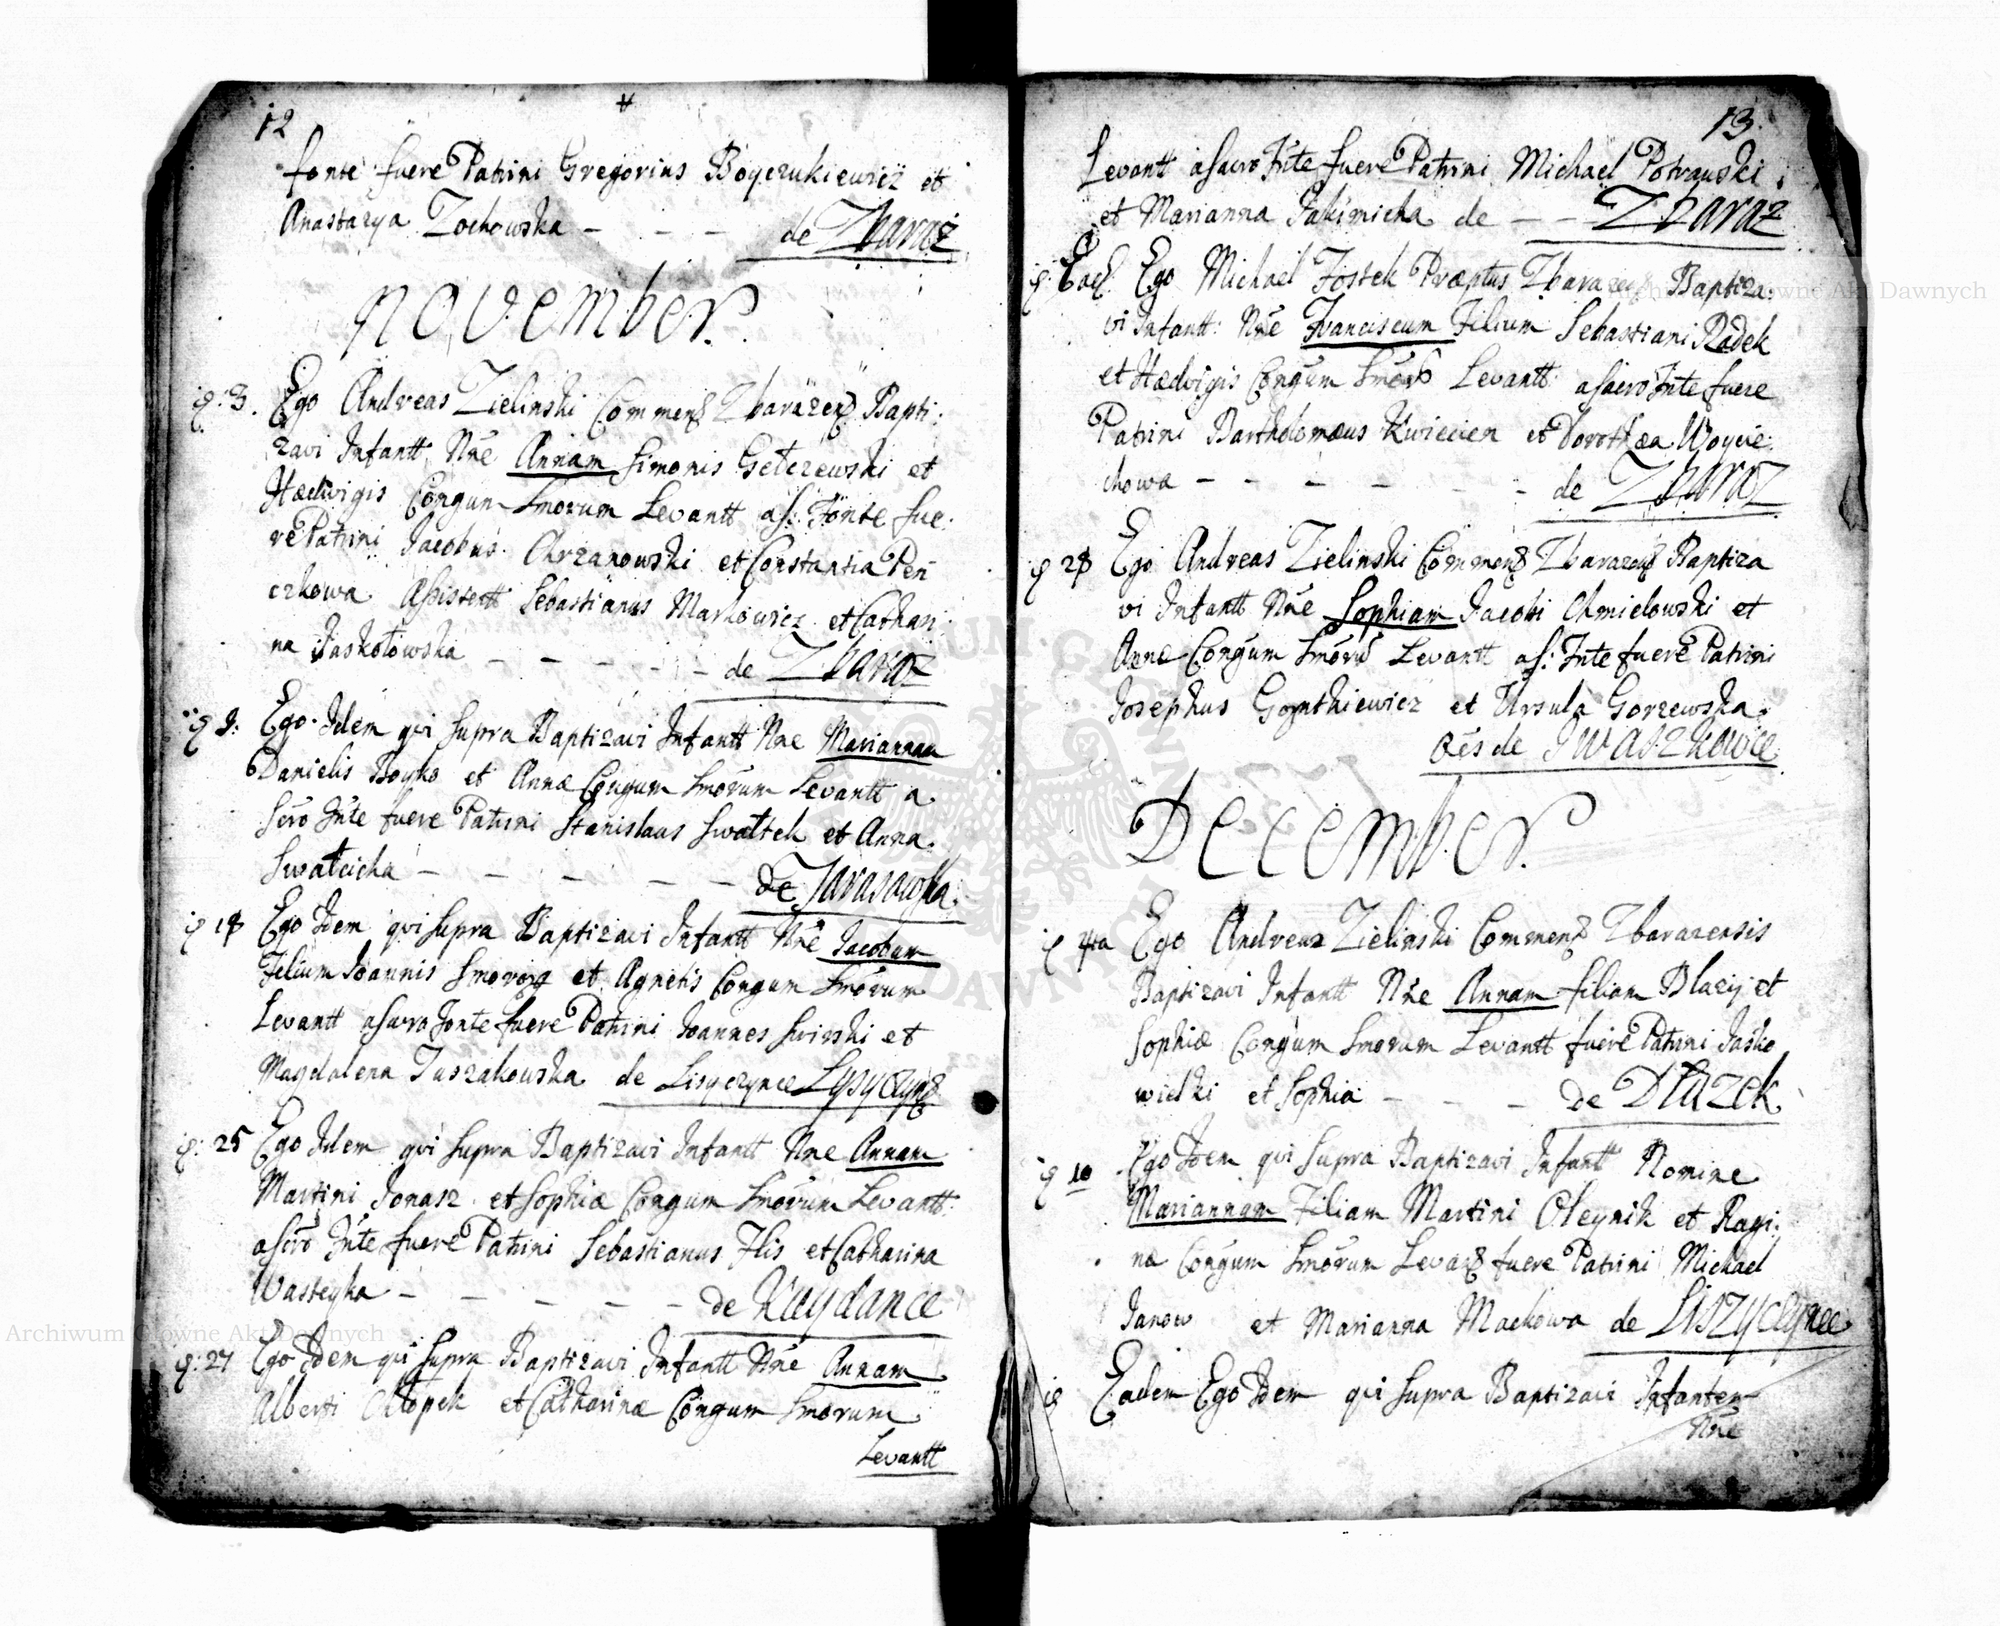 12
fonte fuere Patrini Gregorius Boyczukiewicz et
Anastazya Zochowska - - - de Zbaraz
November.
ię: 3. Ego Andreas Zielinski Commend Zbarazen Bapti:
zavi Infantt Nne Annam Simonis Getczewski et
Hædwigis Congum Lmorum Levantt as: Fonte fue:
re Patrini Jacobus Chrzanowski et Constantia Pen
czkowa Assistentt Sebastianus Markowicz et Cathari
na Jaskołowska - - - - - de Zbaraz
Ego Idem qui supra Baptizavi Infantt Nne Mariannam
Danielis Boyko et Annæ Congum Lmorum Levantt a
Scro Fnte fuere Patrini Stanislaus Swattek et Anna
Swatcicha - - - - - de Tarasowka
18 Ego Idem qui supra Baptizavi Infantt Nne Jacobum
Filium Joannis et Agnetis Congum Lmorum
Levantt asacro Fonte fuere Patrini Joannes Swirski et
Magdalena Juszakowska de Lisyczynce Lysyczynce
25 Ego Idem qui supra Baptizavi Infantt Nne Annam
Martini Jonasz et Sophiæ Congum Lmorum Levantt:
ascro Fnte fuere Patrini Sebastianus Flis et Catharina
Wasteyka - - - - - de Kuydance
27 Ego Idem qui supra Baptizavi Infantt Nne Annam
Alberti Chłopek et Catharinæ Congum Lmorum
Levantt
13.
Levantt asacro Fnte fuere Patrini Michael Potrauski
et Marianna Jakimicha de - - Zbaraz
Ead. Ego Michael Fostek Præptus Zbarazen Baptiza:
vi Infantt: Nne Franciscum Filium Sebastiani Radek
et Hædvigis Congum Lmorum Levantt: asacro Fnte fuere
Patrini Bartholomæus Kwiecien et Dorothæa Woycie:
chowa - - - - - de Zbaraz
28 Ego Andreas Zielinski Commend Zbarazen Baptiza
vi Infantt Nne Sophiam Jacobi Chmielowski et
Annæ Congum Lmorum Levantt as: Fnte fuere Patrini
Josephus Gontkiewicz et Ursula Gorzewska.
Oes de Iwaszkowce
December.
4ta Ego Andreas Zielinski Commend Zbarazensis
Baptizavi Infantt Nne Annam filiam Blazij et
Sophiæ Congum Lmorum Levantt fuere Patrini Jasko
wielki et Sophia - - - de Dłuzek
10 Ego Idem qui supra Baptizavi Infantt Nomine
Mariannam Filiam Martini Oleynik et Ragi:
næ Congum Lmorum Levantt fuere Patrini Michael
Janow et Marianna Mackowa de Liszyczynce
Eadem Ego Idem qui supra Baptizavi Infantem
Nne
Archiwum Główne Akt Dawnych
Archiwum Główne Akt Dawnych